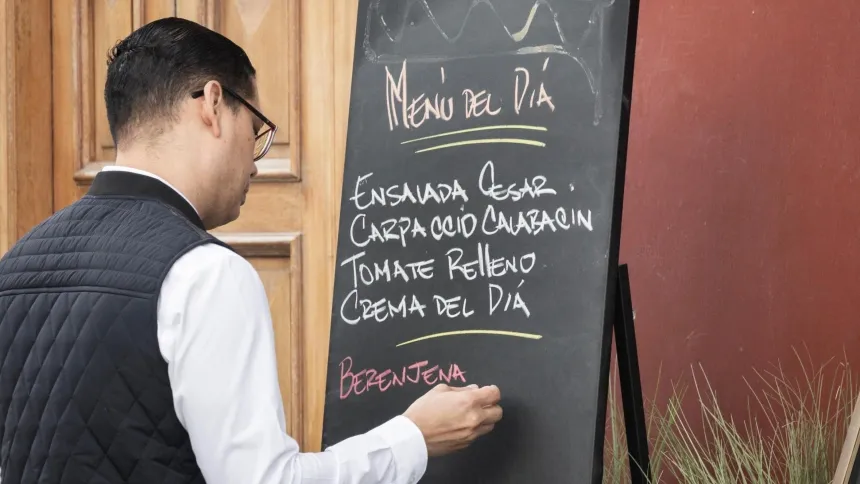 Menú del Diá
Ensalada Cesar.
Carpaccio Calabacin
Tomate Relleno
Crema del Diá
Berenjena